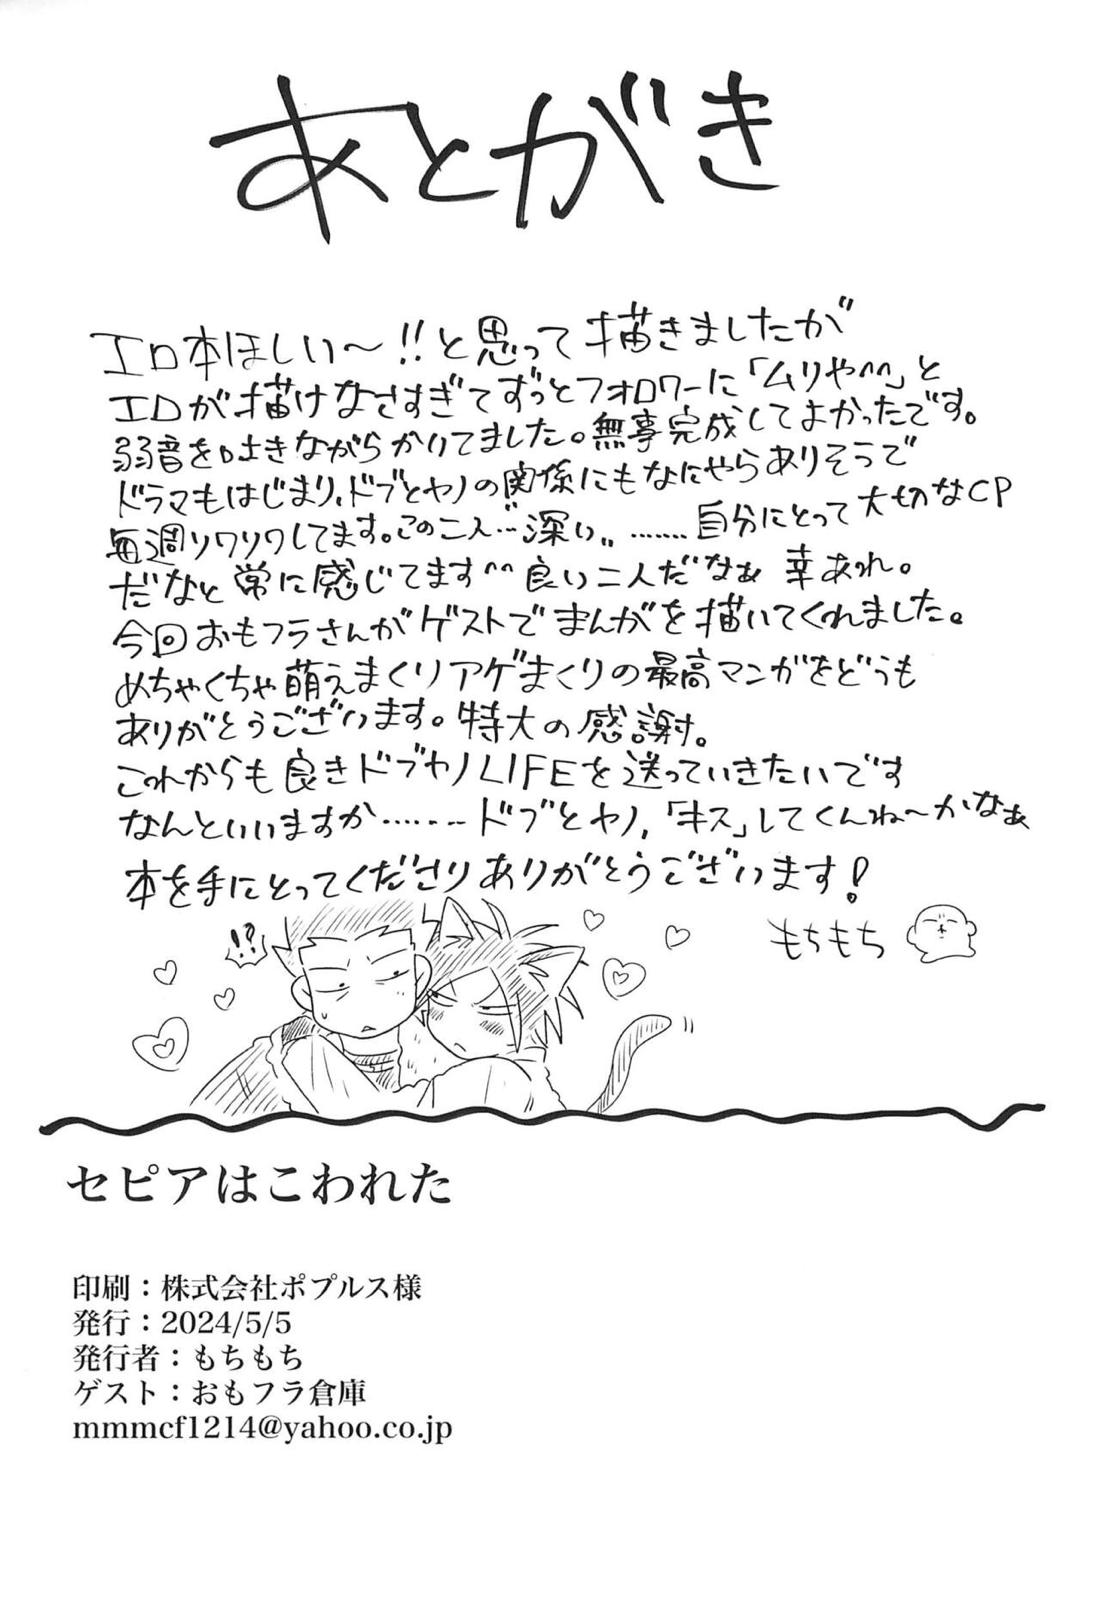 あとがき
エロ本ほしい〜!!と思って描きましたが
エロが描けなさすぎてずっとフォロワーに「ムリや^^」と
弱音を吐きながらかいてました。無事完成してよかったです。
ドラマもはじまり、ドブとヤノの関係にもなにやらありそうで
毎週ソワソワしてます。この二人…゛深い〟……自分にとって大切なCP
だなと常に感じてます^^良い二人だなぁ 幸あれ。
今回おもフラさんがゲストでまんがを描いてくれました。
めちゃくちゃ萌えまくりアゲまくりの最高マンガをどうも
ありがとうございます。特大の感謝。
これからも良きドブヤノLIFEを送っていきたいです
なんといいますか……ドブとヤノ,「キス」してくんね〜かなぁ
本を手にとってくださりありがとうございます!
もちもち
!?
セピアはこわれた
印刷：株式会社ポプルス様
発行：2024/5/5
発行者：もちもち
ゲスト：おもフラ倉庫
mmmcf1214@yahoo.co.jp